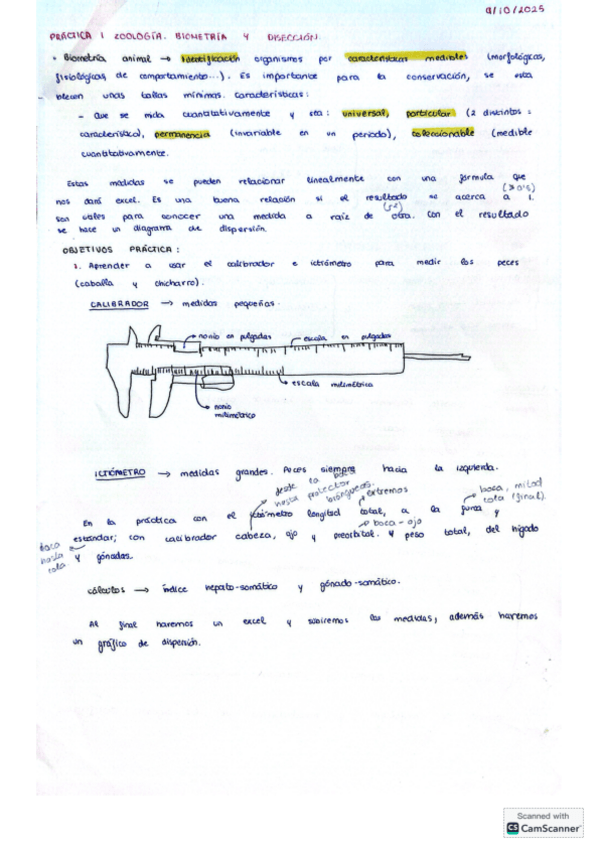 9/10/2025
PRÁCTICA 1 ZOOLOGÍA. BIOMETRÍA Y DISECCIÓN.
• Biometría animal → Identificación organismos por características medibles (morfológicas,
fisiológicas, de comportamiento...). Es importante para la conservación, se esta
blecen unas tallas mínimas. Características:
- Que se mida cuantitativamente y sea: universal, particular (2 distintos :
característica), permanencia (invariable en un periodo), coleccionable (medible
cuantitativamente.
Estas medidas se pueden relacionar linealmente con una fórmula que
nos dará excel. Es una buena relación si el resultado se acerca a 1.
(r²) (≥ 0'5)
son útiles para conocer una medida a raíz de otra. Con el resultado
se hace un diagrama de dispersión.
OBJETIVOS PRÁCTICA :
1. Aprender a usar el calibrador e ictiómetro para medir los peces
(caballa y chicharro).
CALIBRADOR → medidas pequeñas.
nonio en pulgadas
escala en pulgadas
escala milimétrica
nonio
milimétrico
ICTIÓMETRO → medidas grandes. Peces siempre hacia la izquierda.
desde la boca
hasta protector
branqueas.
extremos
boca, mitad
cola (final).
En la práctica con el ictiómetro longitud total, a la furca y
boca - ojo
estándar; con calibrador cabeza, ojo y preorbital. Y peso total, del hígado
boca
hasta
cola
y gónadas.
cálculos → índice hepato-somático y gónado-somático.
Al final haremos un excel y subiremos las medidas, además haremos
un gráfico de dispersión.
Scanned with
CS CamScanner